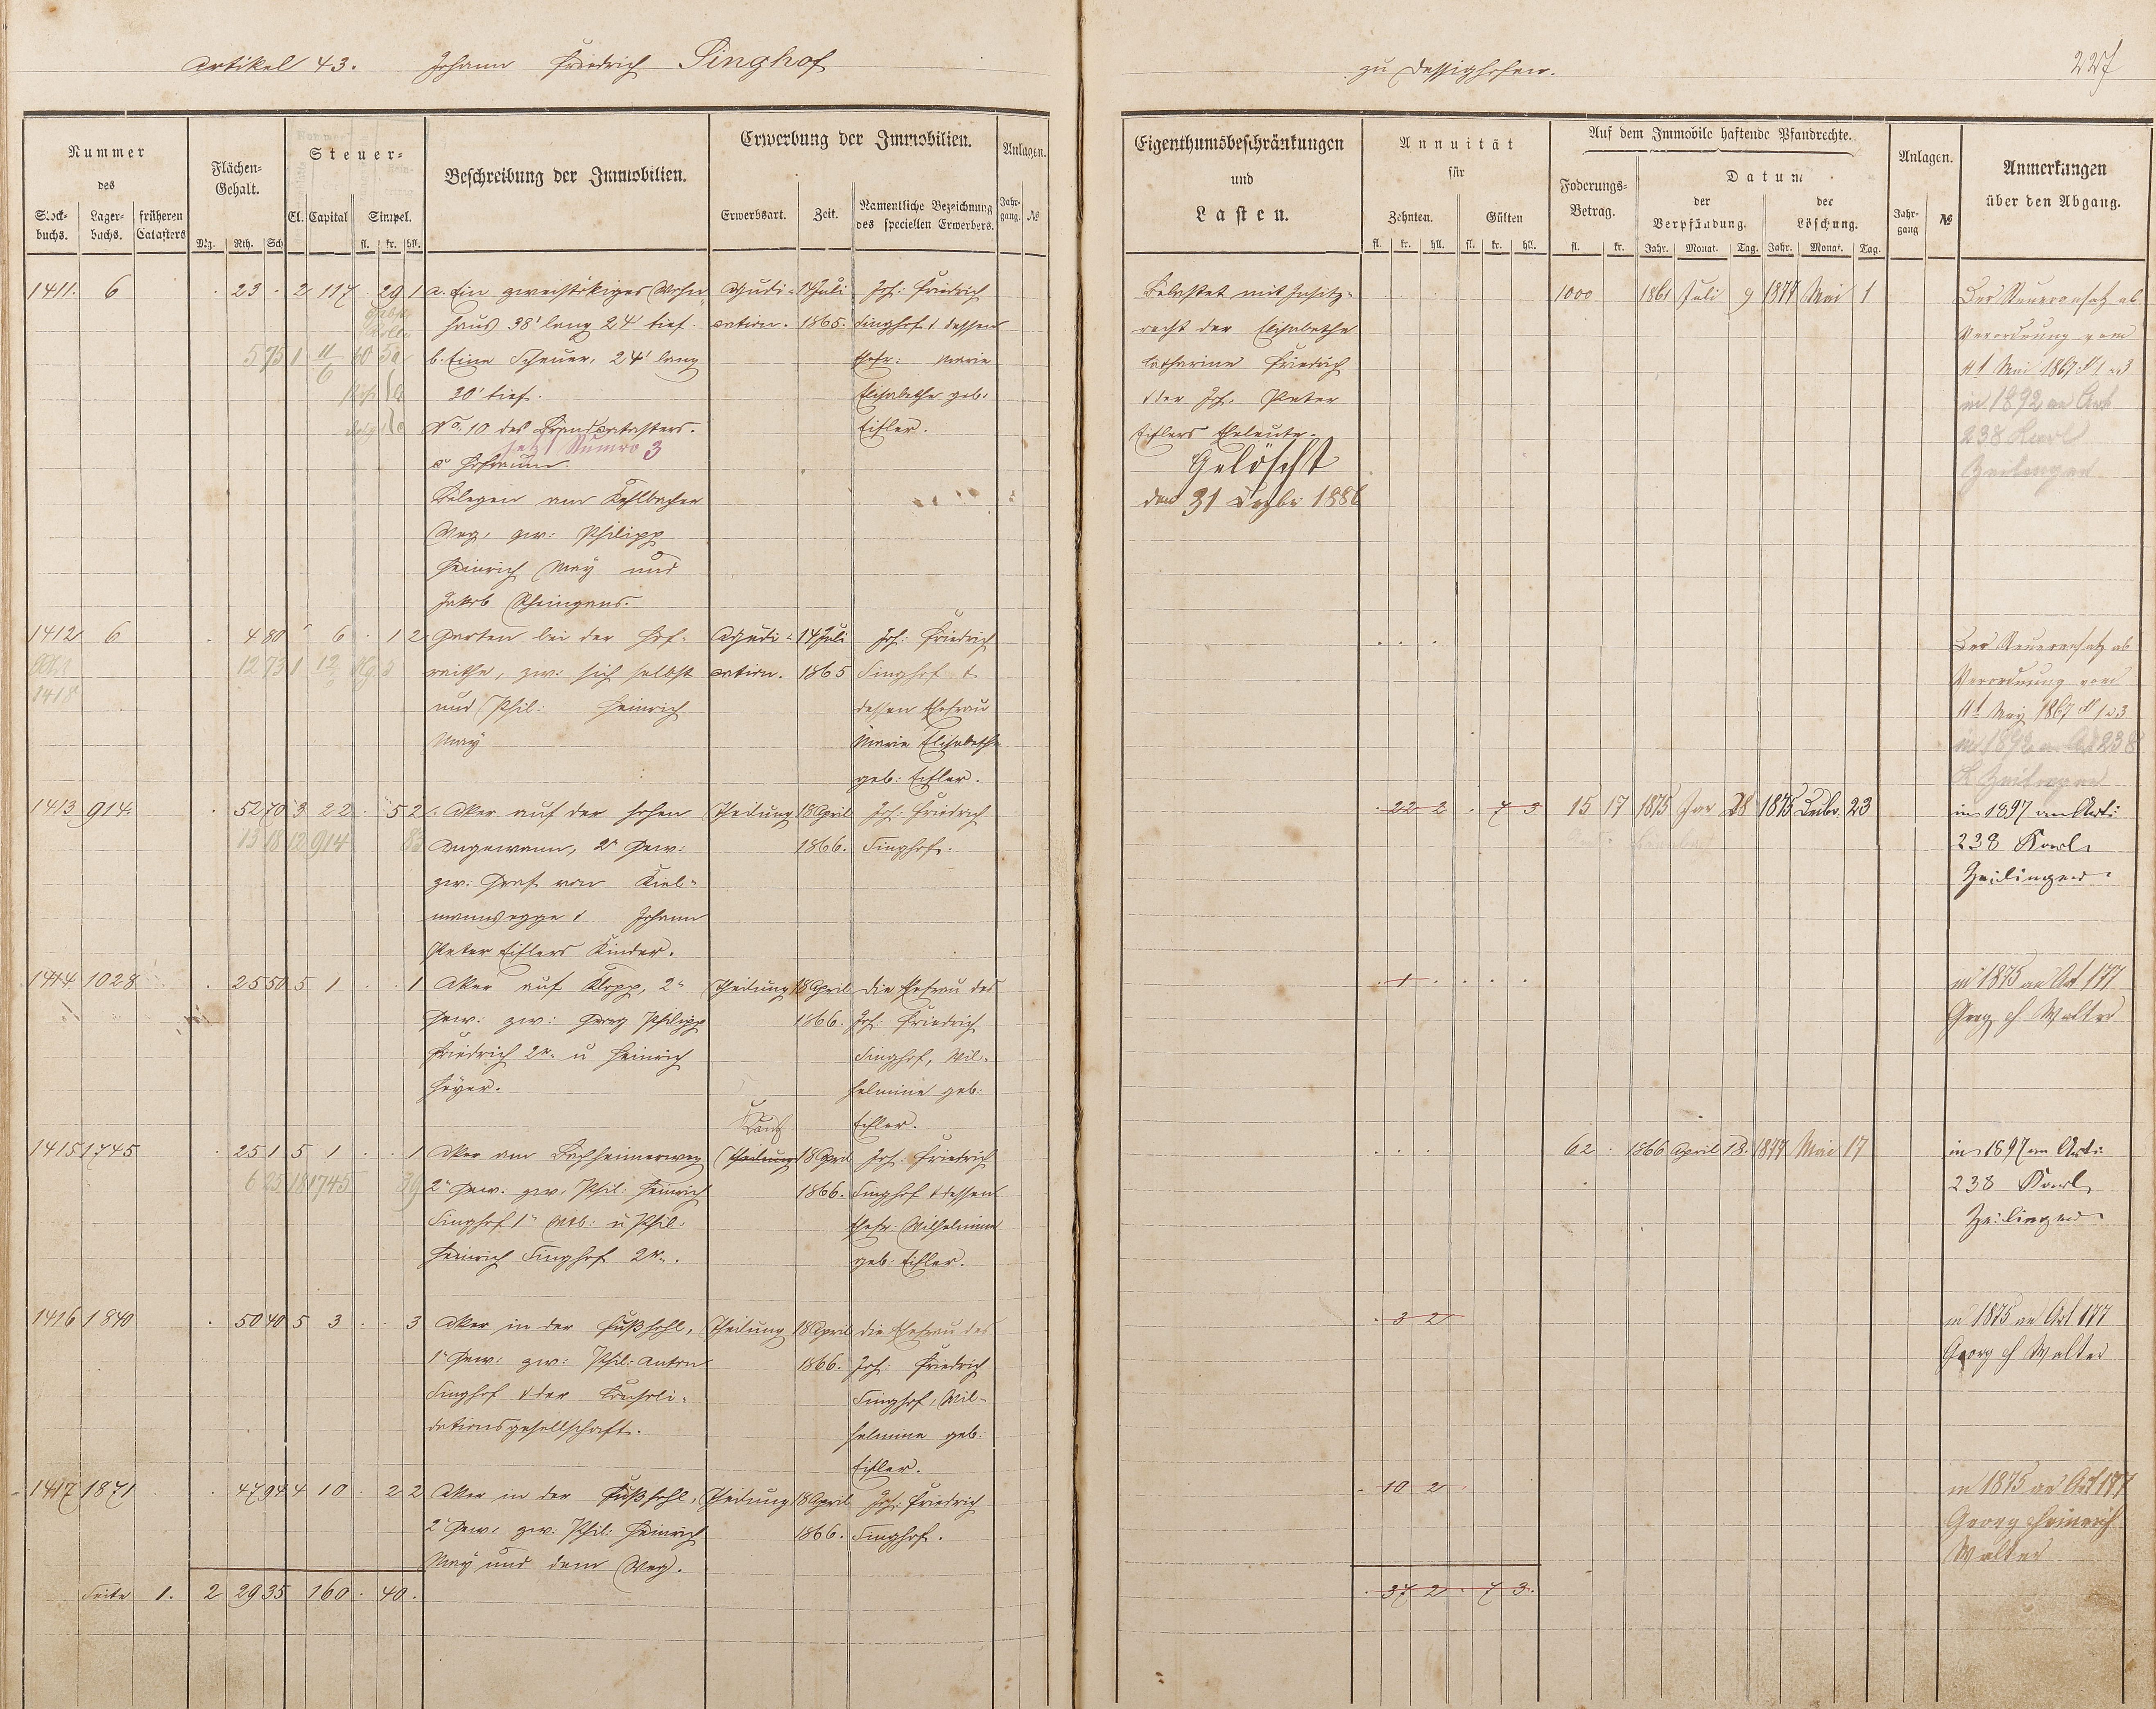 Artikel 43. Johann Friedrich Singhof
zu Dessighofen.
227
Nummer
des
Stock-
buchs.
Lager-
buchs.
früheren
Catasters
Flächen-
Gehalt.
Mg. Rth. Sch
Steuer-
Cl. Capital Simpel.
fl. kr. hll.
Beschreibung der Immobilien.
Erwerbung der Immobilien.
Erwerbsart. Zeit. Namentliche Bezeichnung
des speciellen Erwerbers.
Anlagen.
Jahr-
gang. №
Eigenthumsbeschränkungen
und
Lasten.
Annuität
für
Zehnten. Gülten
fl. kr. hll. fl. kr. hll.
Auf dem Immobile haftende Pfandrechte.
Foderungs-
Betrag.
fl. kr.
Datum
der
Verpfändung.
der
Löschung.
Jahr. Monat. Tag. Jahr. Monat. Tag.
Anlagen.
Jahr-
gang №
Anmerkungen
über den Abgang.
1411. 6 23 2 117 29 1
a. Ein zweistökiges Wohn-
haus 38' lang 24' tief.
b. Eine Scheuer, 24' lang
30' tief.
No. 10 des Brandcatasters.
jetzt Numro 3
c Hofraum.
Belegen am Kehlbacher
Weg, zw: Philipp
Heinrich May und
Jakob Rheingans.
Adjudi-
cation.
14 Juli
1865.
Joh: Friedrich
Singhof & dessen
Ehefr: Marie
Elisabethe geb:
Eisler.
Belastet mit Insitz-
recht der Elisabethe
Catharine Friedrich
& der Joh. Peter
Eislers Eheleute.
Gelöscht
den 31 Dezbr 1886
1000 1861 Juli 9 1877 Mai 1
Der Steueransatz ab
Verordnung vom
11t Mai 1867
in 1892 an Art
238 Karl
1412 6 4 80 6 1 2
12 73 1
1418
Garten bei der Hof-
reithe, zw: sich selbst
und Phil: Heinrich
May
Adjudi-
cation.
14 Juli
1865
Joh: Friedrich
Singhof &
dessen Ehefrau
Marie Elisabethe
geb: Eisler.
Der Steueransatz ab
Verordnung vom
11t May 1867
in 1892 an Art 238
1413 914. 52 70 3 22 5 2
13 18 12 914
Aker auf der hohen
Angewann, 2e Gew:
zw: Graf von Kiel-
mannsegge & Johann
Peter Eislers Kinder.
Theilung 18 April
1866.
Joh: Friedrich
Singhof.
22 2 7 3
15 17 1875 Jan 28 1875 Decbr. 23
in 1897 an Art:
238 Karl
Zeilinger.
1414 1028 25 50 5 1 1
Aker auf Klopp, 2e
Gew: zw: Georg Philipp
Friedrich 2r. u Heinrich
Heyer.
Theilung 18 April
1866.
Die Ehefrau des
Joh: Friedrich
Singhof, Wil-
helmine geb:
Eisler.
1
in 1875 an Art 177
Georg H. Walter
1415 1745 25 1 5 1 1
6 25 18 1745 39
Aker am Dachsheimerweg
2e Gew. zw. Phil: Heinrich
Singhof 1r Wtb: u Phil:
Heinrich Singhof 2r.
Theilung 18 April
1866.
Joh. Friedrich
Singhof & dessen
Ehefr: Wilhelmine
geb: Eisler.
62 1866 April 18. 1877 Mai 17
in 1897 an Art:
238 Karl
Zeilinger.
1416 1840 50 40 5 3 3
Aker in der Fußhohl,
1e Gew: zw: Phil: Anton
Singhof & der Consoli-
dationsgesellschaft.
Theilung 18 April
1866.
Die Ehefrau des
Joh: Friedrich
Singhof, Wil-
helmine geb:
Eisler.
3 2
in 1875 an Art 177
Georg H Walter
1417 1871 47 94 4 10 2 2
Aker in der Fußhohl,
2e Gew: zw: Phil: Heinrich
May und dem Weg.
Theilung 18 April
1866.
Joh: Friedrich
Singhof.
10 2
in 1875 an Art 177
Georg Heinrich
Walter
Seite 1. 2 29 35 160 40.
37 2 7 3.